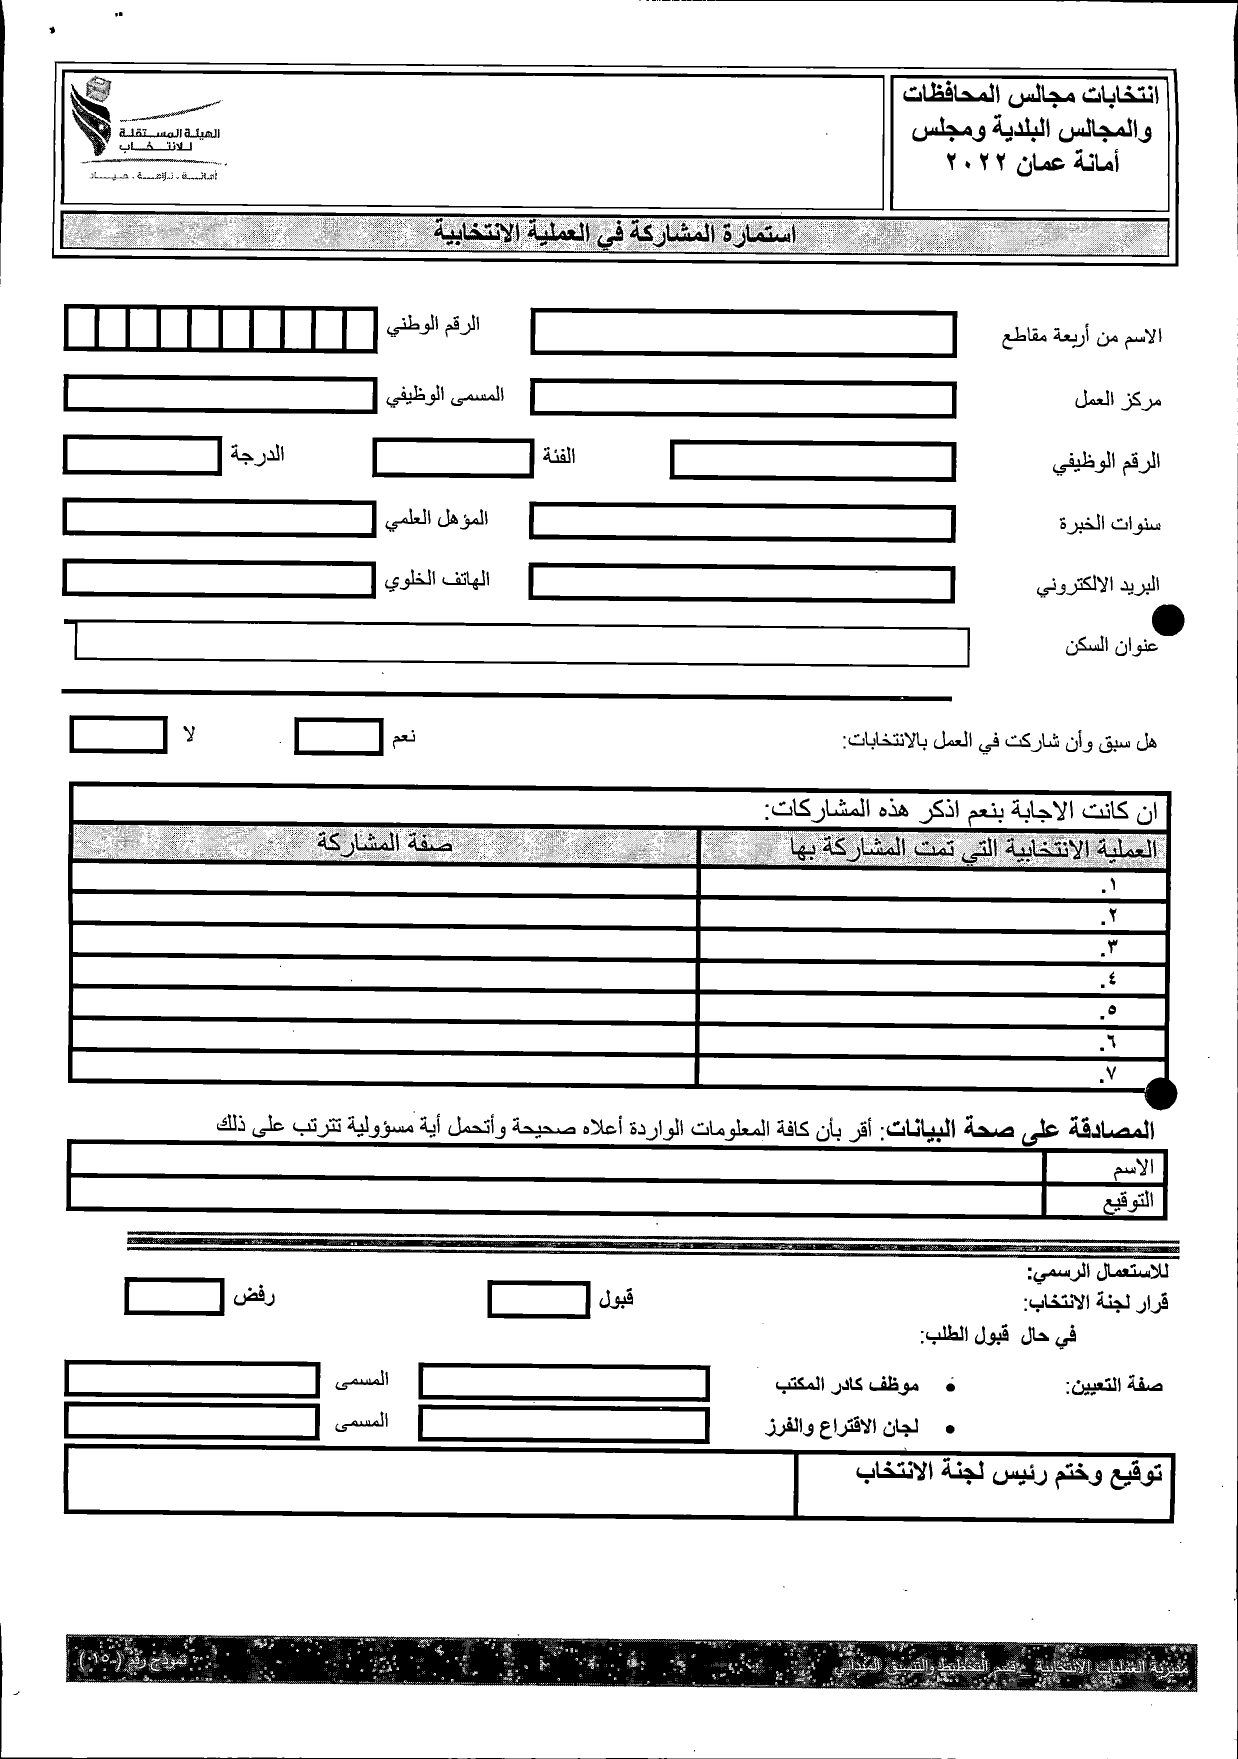 انتخابات مجالس المحافظات
والمجالس البلدية ومجلس
أمانة عمان ٢٠٢٢
الهيئة المستقلة
للانتخاب
أمانة . نزاهة . حياد
استمارة المشاركة في العملية الانتخابية
الاسم من أربعة مقاطع
الرقم الوطني
مركز العمل
المسمى الوظيفي
الرقم الوظيفي
الفئة
الدرجة
سنوات الخبرة
المؤهل العلمي
البريد الالكتروني
الهاتف الخلوي
عنوان السكن
هل سبق وأن شاركت في العمل بالانتخابات:
نعم
لا
ان كانت الاجابة بنعم اذكر هذه المشاركات:
العملية الانتخابية التي تمت المشاركة بها
صفة المشاركة
١.
٢.
٣.
٤.
٥.
٦.
٧.
المصادقة على صحة البيانات: أقر بأن كافة المعلومات الواردة أعلاه صحيحة وأتحمل أية مسؤولية تترتب على ذلك
الاسم
التوقيع
للاستعمال الرسمي:
قرار لجنة الانتخاب:
قبول
رفض
في حال قبول الطلب:
صفة التعيين:
• موظف كادر المكتب
المسمى
• لجان الاقتراع والفرز
المسمى
توقيع وختم رئيس لجنة الانتخاب
مديرية العمليات الانتخابية _ قسم التخطيط والتنسيق الميداني
نموذج رقم